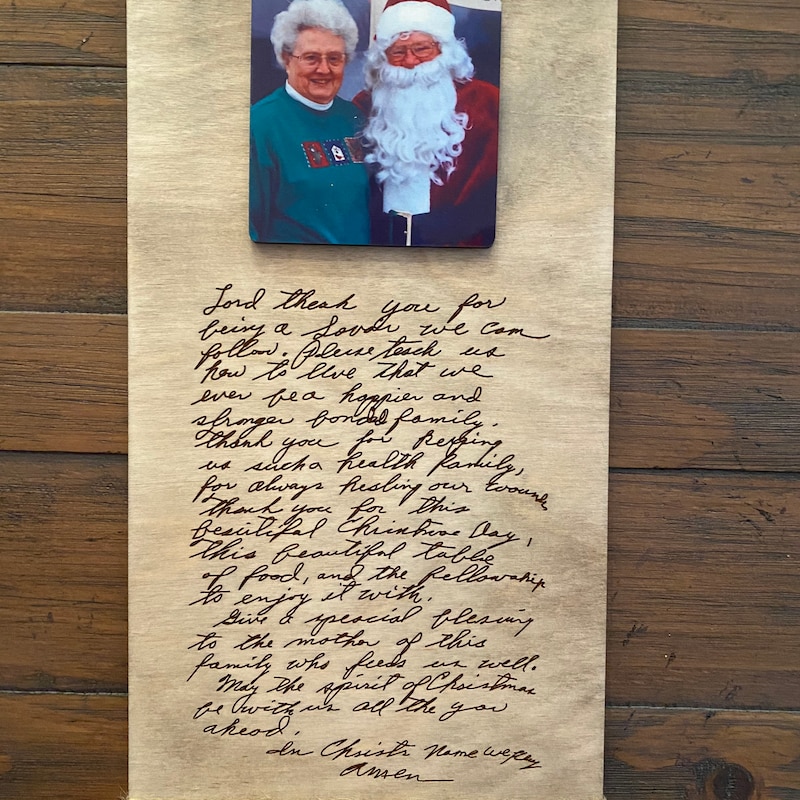 Lord thank you for
being a Savor we can
follow. Please teach us
how to live that we
ever be a happier and
stronger bonded family.
Thank you for keeping
us such a health family,
for always healing our wounds
Thank you for this
beautiful Christmas Day,
this beautiful table
of food, and the fellowship
to enjoy it with.
Give a speacial blessing
to the mother of this
family who feeds us well.
May the spirit of Christmas
be with us all the year
ahead.
In Christs Name we Pray
Amen